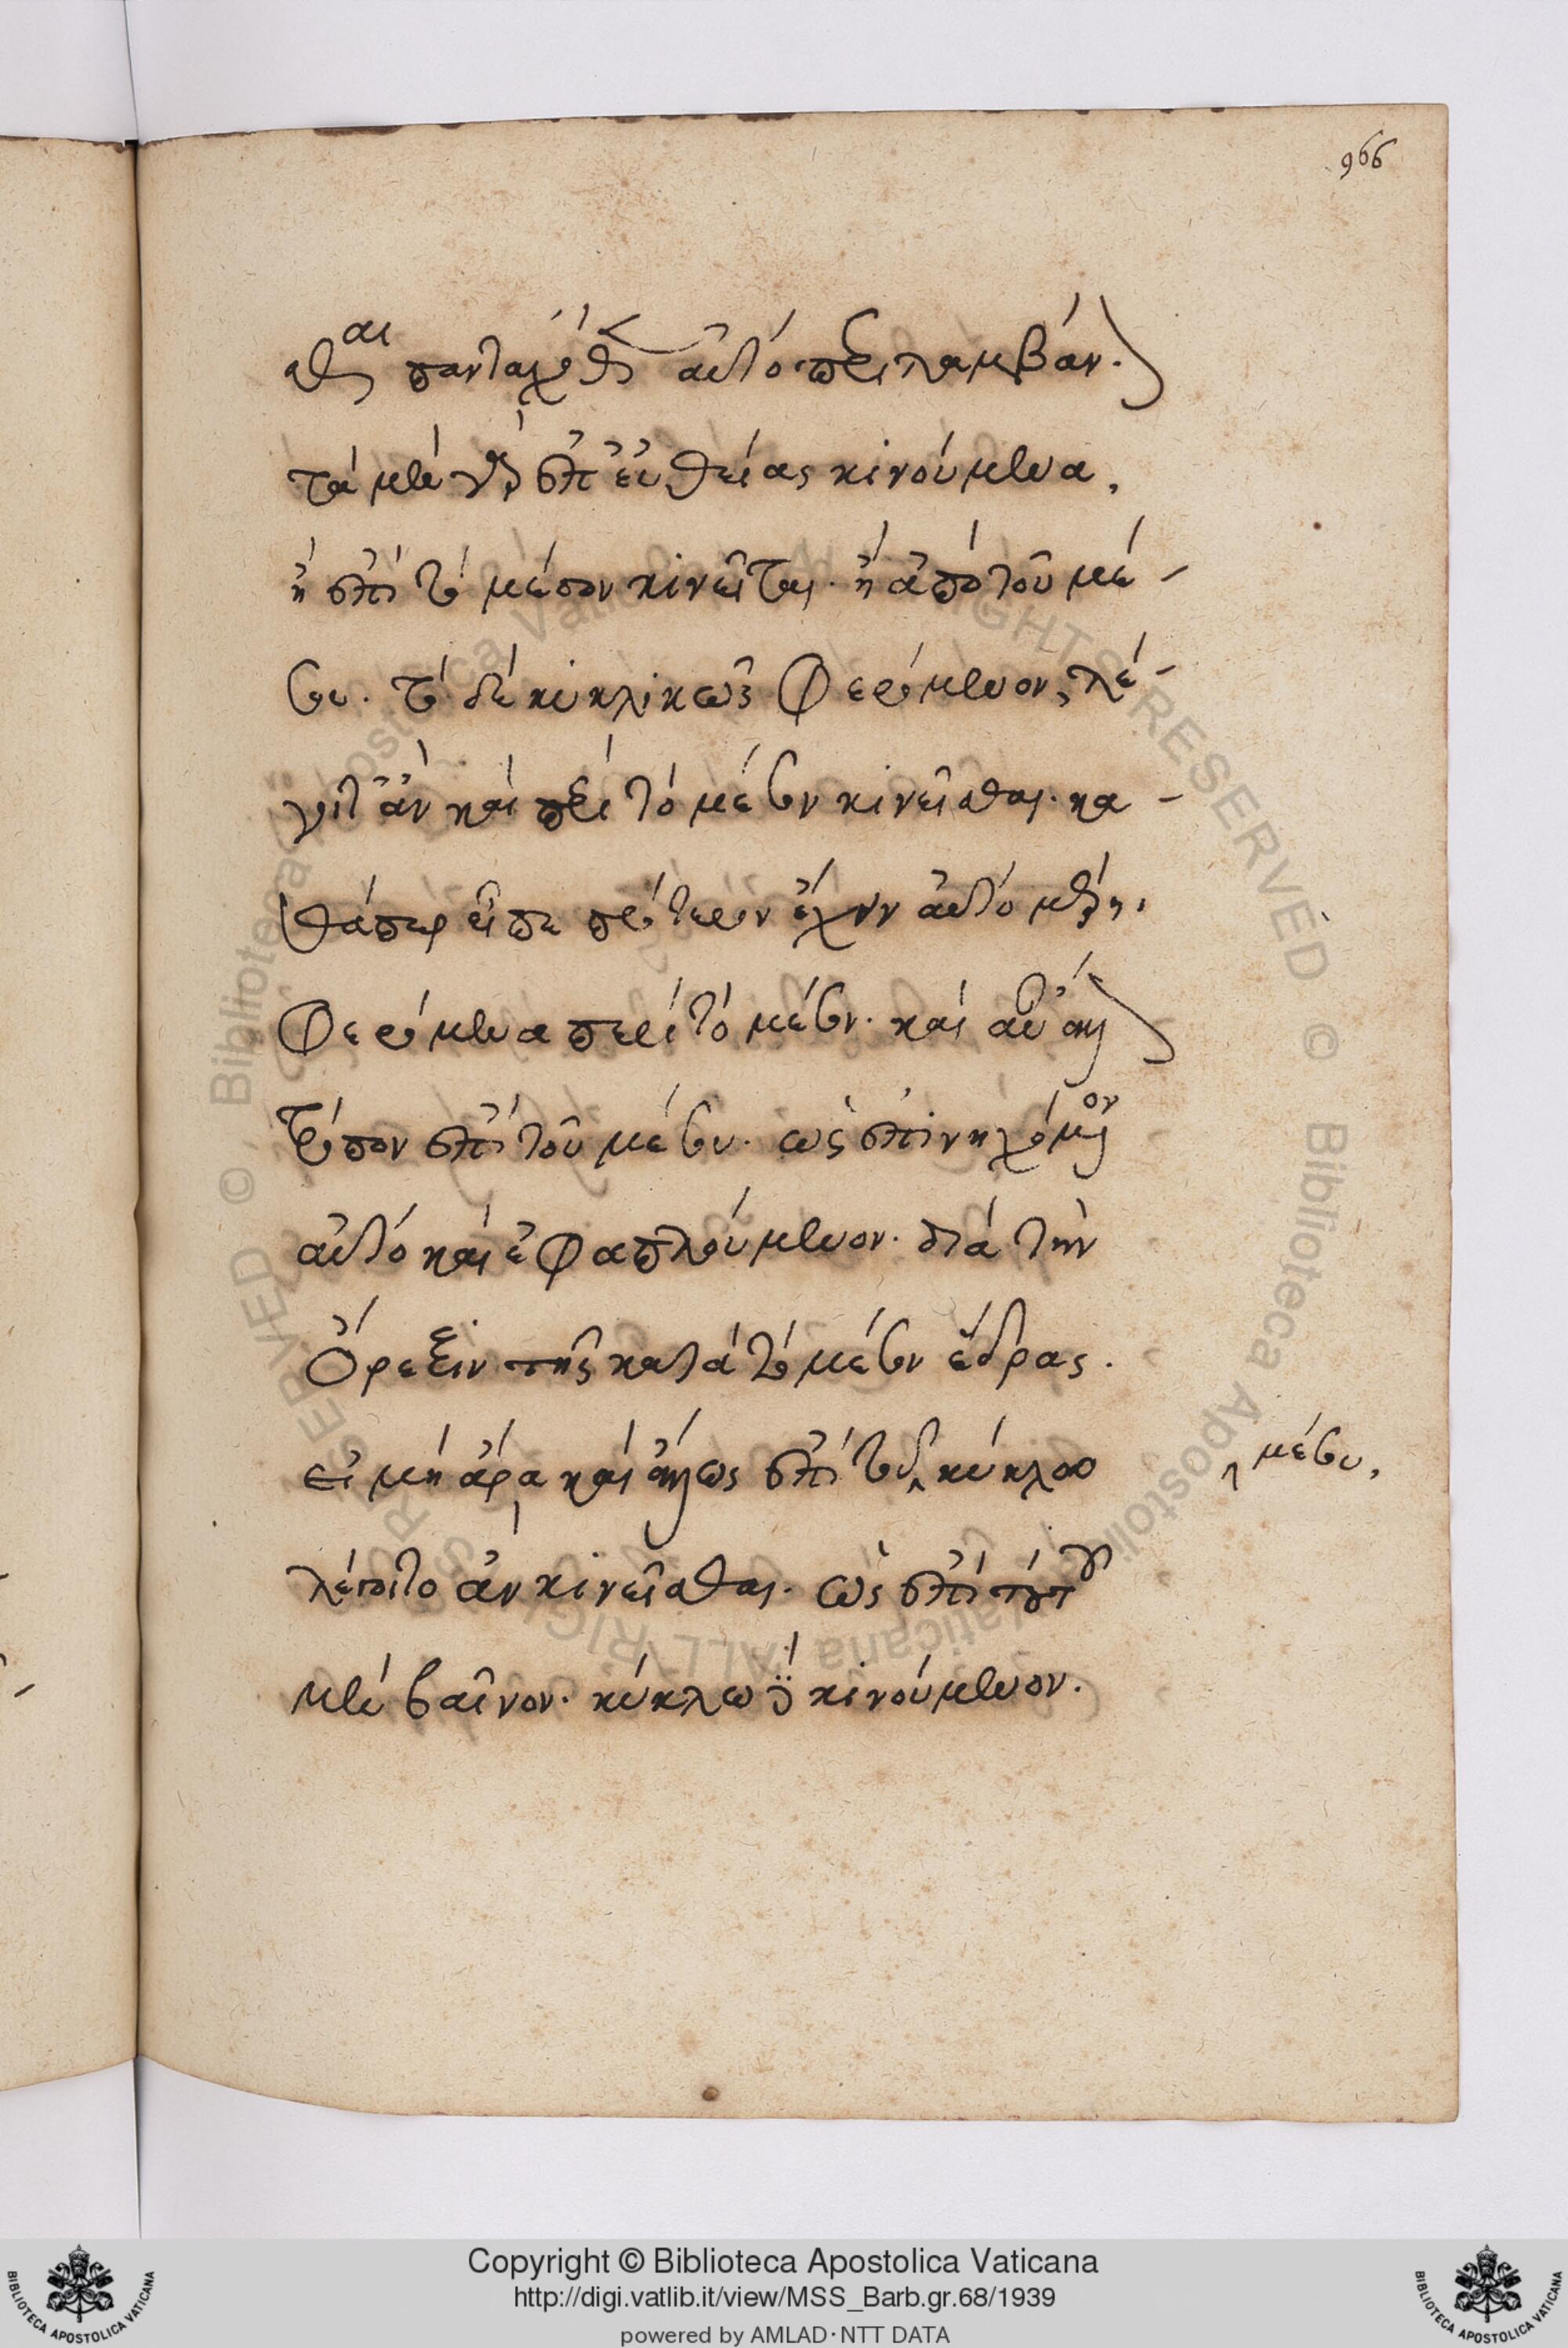 966
σθαι πανταχόθεν αὐτὸ περιλαμβάνον.
τὰ μὲν γὰρ ἐπ' εὐθείας κινούμενα,
ἢ ἐπὶ τὸ μέσον κινεῖται. ἢ ἀπὸ τοῦ μέ-
σου. τὸ δὲ κυκλικῶς φερόμενον, λέ-
γοιτ' ἂν καὶ περὶ τὸ μέσον κινεῖσθαι. κα-
θάπερ εἶπε πρότερον
φερόμενα περὶ τὸ μέσον. καὶ
τρόπον ἐπὶ τοῦ μέσου. ὡς ἐπινηχόμενον
αὐτὸ καὶ ἐφαπλούμενον. διὰ τὴν
ὄρεξιν τῆς κατὰ τὸ μέσον ἕδρας.
εἰ μὴ ἄρα καὶ ἄλλως ἐπὶ τοῦ κύκλῳ
μέσου,
λέγοιτο ἂν κινεῖσθαι. ὡς ἐπὶ
μὲν βαῖνον. κύκλῳ δὲ κινούμενον.
Copyright © Biblioteca Apostolica Vaticana
http://digi.vatlib.it/view/MSS_Barb.gr.68/1939
powered by AMLAD·NTT DATA
BIBLIOTECA APOSTOLICA VATICANA
BIBLIOTECA APOSTOLICA VATICANA
© Biblioteca Apostolica Vaticana ALL RIGHTS RESERVED